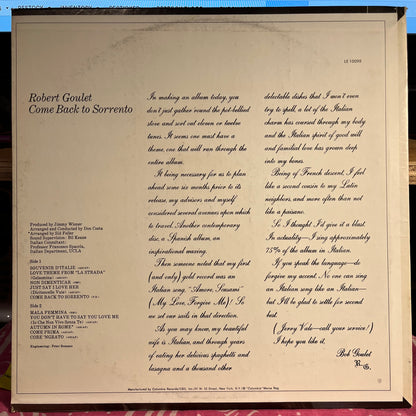 LE 10099
Robert Goulet
Come Back to Sorrento
Produced by Jimmy Wisner
Arranged and Conducted by Don Costa
*Arranged by Sid Feller
Sound Supervision: Ed Kease
Italian Consultant:
Professor Francesco Spaeda,
Italian Department, UCLA
Side 1
SOUVENIR D'ITALIE
LOVE THEME FROM "LA STRADA"
(Gelsomina)
NON DIMENTICAR
JUST SAY I LOVE HER
(Dicitencello Vuie)
COME BACK TO SORRENTO
Side 2
MALA FEMMINA
YOU DON'T HAVE TO SAY YOU LOVE ME
(Io Che Non Vivo Senza Te)
AUTUMN IN ROME*
COME PRIMA
CORE 'NGRATO
Engineering:
In making an album today, you
don't just gather round the pot-bellied
stove and sort out eleven or twelve
tunes. It seems one must have a
theme, one that will run through the
entire album.
It being necessary for us to plan
ahead some six months prior to its
release, my advisors and myself
considered several avenues upon which
to travel. Another contemporary
disc, a Spanish album, an
inspirational waxing.
Then someone noted that my first
(and only) gold record was an
Italian song, "Amore, Scusami"
(My Love, Forgive Me)! So
we set our sails in that direction.
As you may know, my beautiful
wife is Italian, and through years
of eating her delicious spaghetti and
lasagna and a thousand other
delectable dishes that I won't even
try to spell, a lot of the Italian
charm has coursed through my body
and the Italian spirit of good will
and familial love has grown deep
into my bones.
Being of French descent, I feel
like a second cousin to my Latin
neighbors, and more often than not
like a paisano.
So I thought I'd give it a blast.
In actuality—I sing approximately
75% of the album in Italian.
If you speak the language—do
forgive my accent. No one can sing
an Italian song like an Italian—
but I'll be glad to settle for second
best.
(Jerry Vale—call your service!)
I hope you like it.
Bob Goulet
R. G.